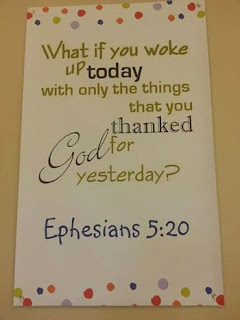 What if you woke
up today
with only the things
that you
thanked
God for
yesterday?
Ephesians 5:20